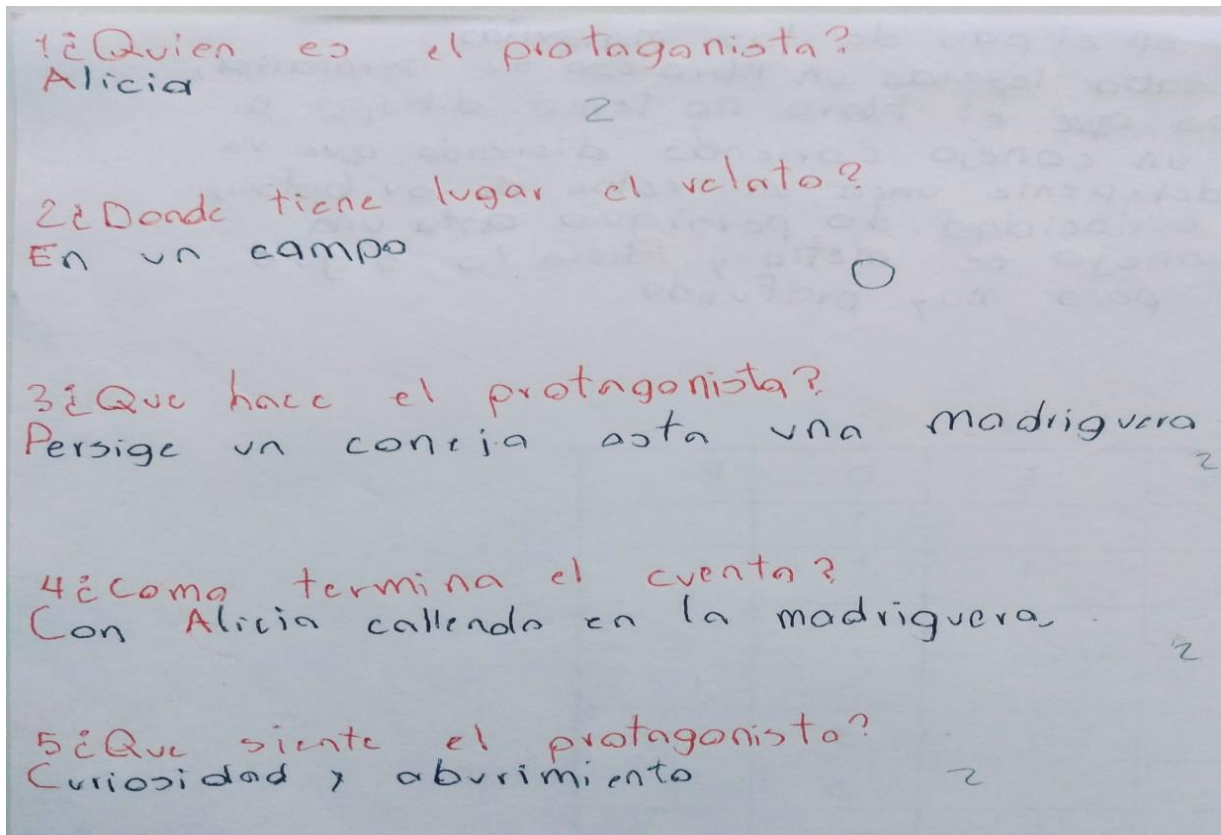 1¿Quien es el protagonista?
Alicia
2
2¿Donde tiene lugar el relato?
En un campo
0
3¿Que hace el protagonista?
Persige un coneja asta una madriguera
2
4¿Como termina el cuento?
Con Alicia callendo en la madriguera
2
5¿Que siente el protagonisto?
Curiosidad y aburimiento
2